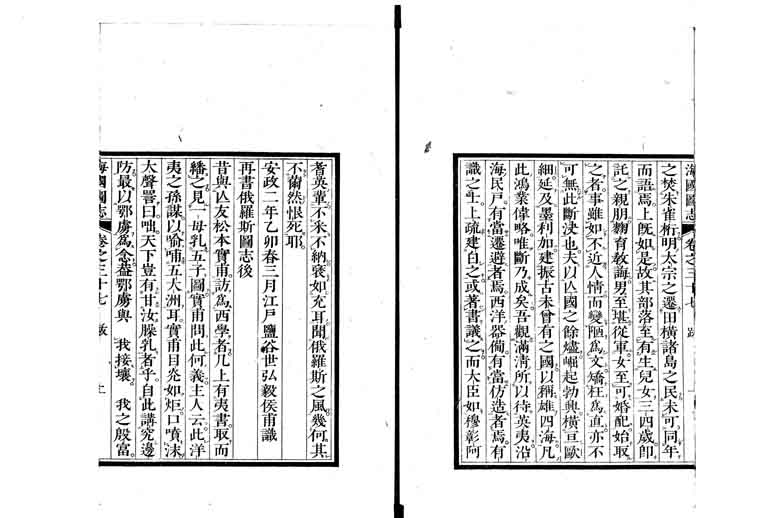 海國圖志 卷之三十七 跋
之焚朱雀桁明太宗之遷田橫諸島之民未可同年
而語焉上既如是故其部落至有生兒女三四歲卽
託之親朋鞠育敎誨男至堪從軍女至可婚配始取
之者事雖如不近人情而變陋爲文矯枉爲直亦不
可無此斷決也夫以亾國之餘燼崛起勃興橫亘歐
細延及墨利加建振古未曾有之國以稱雄四海凡
此鴻業偉略唯斷乃成矣吾觀滿清所以待英夷沿
海民戸有當遷避者焉西洋器僃有當仿造者焉有
識之士上疏建白之或著書議之而大臣如穆彰阿
耆英輩不米不納裦如充耳聞俄羅斯之風幾何其
不薾然恨死耶
安政二年乙卯春三月江戸鹽谷世弘毅侯甫識
再書俄羅斯圖志後
昔與亾友松本實甫訪爲西學者几上有夷書取而
繙之見一母乳五子圖實甫問此何義主人云此洋
夷之孫謀以喩哺五大洲耳實甫目炎如炬口噴沫
大聲詈曰咄天下豈有甘汝臊乳者乎自此講究邊
防最以鄂虜爲念葢鄂虜與 我接壤 我之殷富
海國圖志 卷之三十七 跋 上